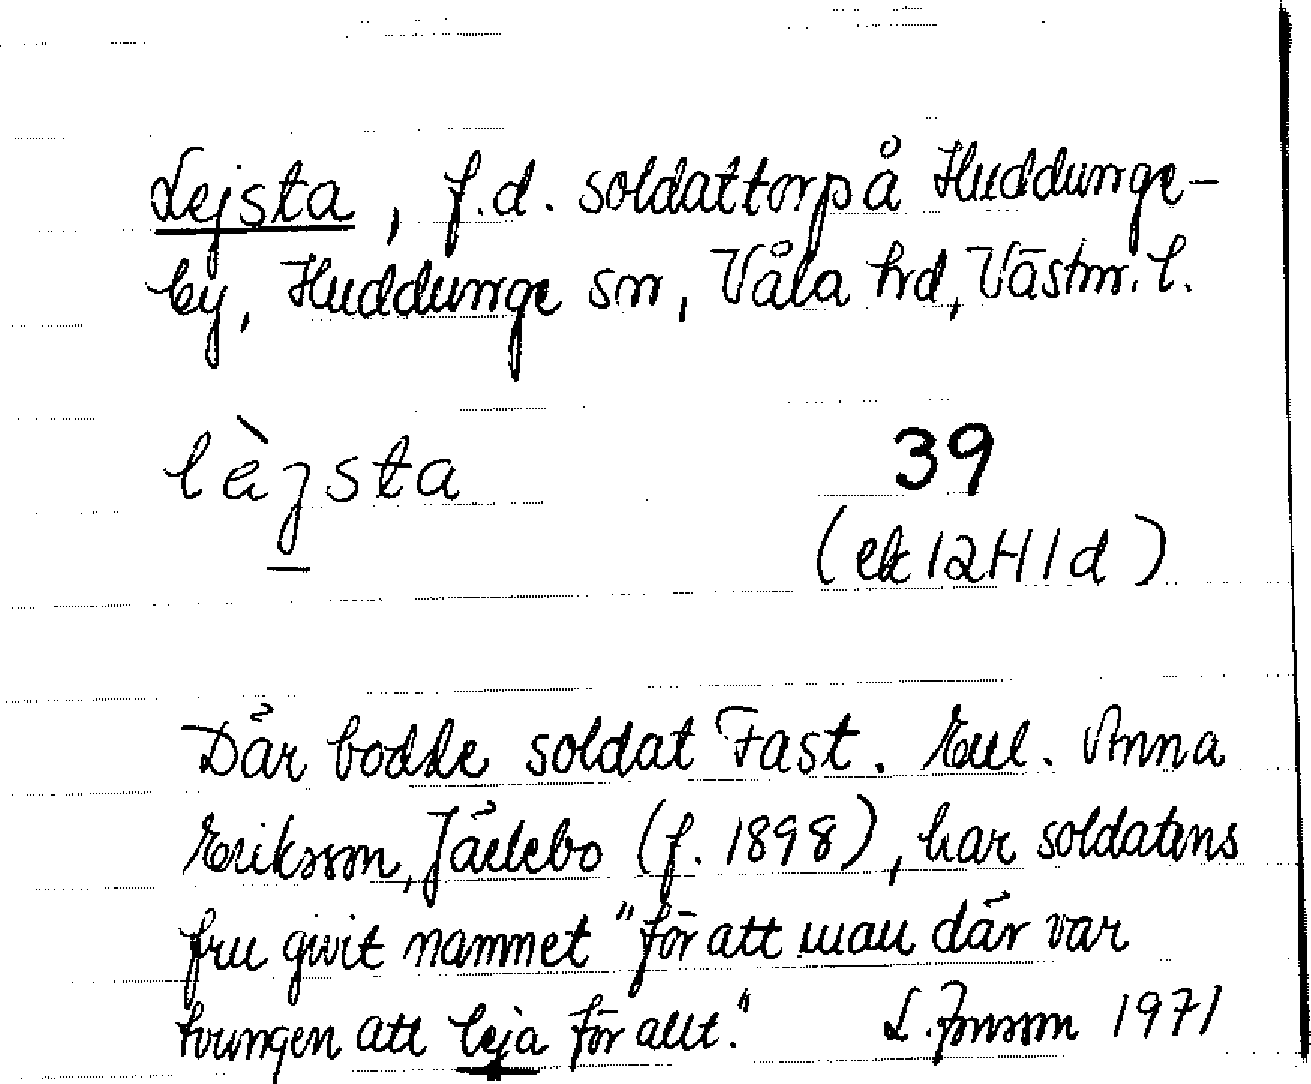 Lejsta, f.d. soldattorp å Huddunge-
by, Huddunge sn, Våla hrd, Västm. l.
lèjsta
39
(ek 12H1d)
Där bodde soldat Fast. Enl. Anna
Eriksson, Järlebo (f. 1898), har soldatens
fru givit namnet "för att man där var
tvungen att leja för allt."
L. Jonsson 1971